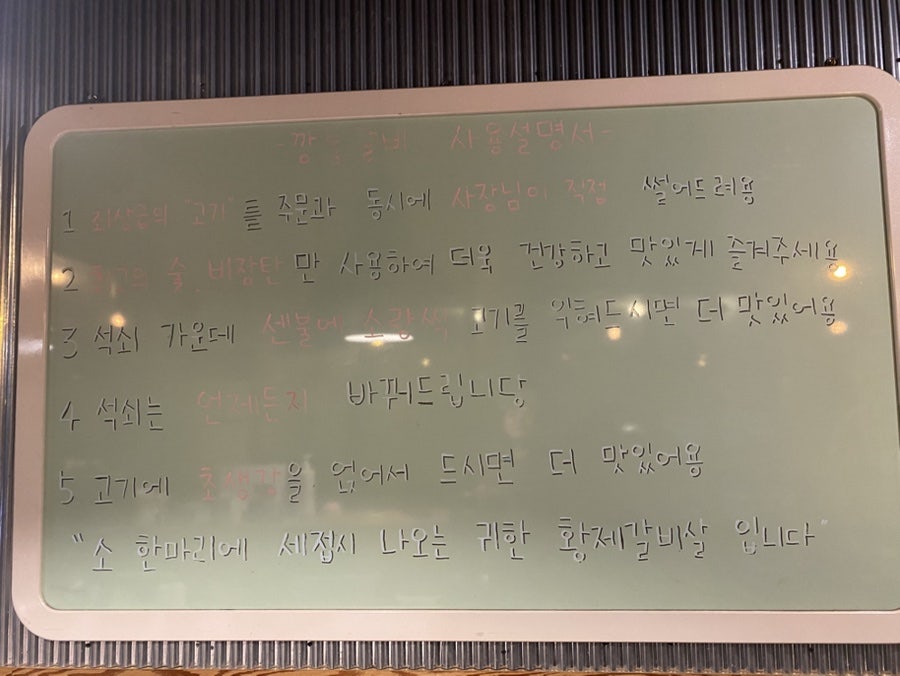 사용설명서-
1 최상급의 "고기"를 주문과 동시에 사장님이 직접 썰어드려용
2 최고의 숯, 비장탄만 사용하여 더욱 건강하고 맛있게 즐겨주세용
3 석쇠 가운데 센불에 소량씩 고기를 익혀드시면 더 맛있어용
4 석쇠는 언제든지 바꿔드립니당
5 고기에 초생강을 얹어서 드시면 더 맛있어용
"소 한마리에 세접시 나오는 귀한 황제갈비살 입니다"